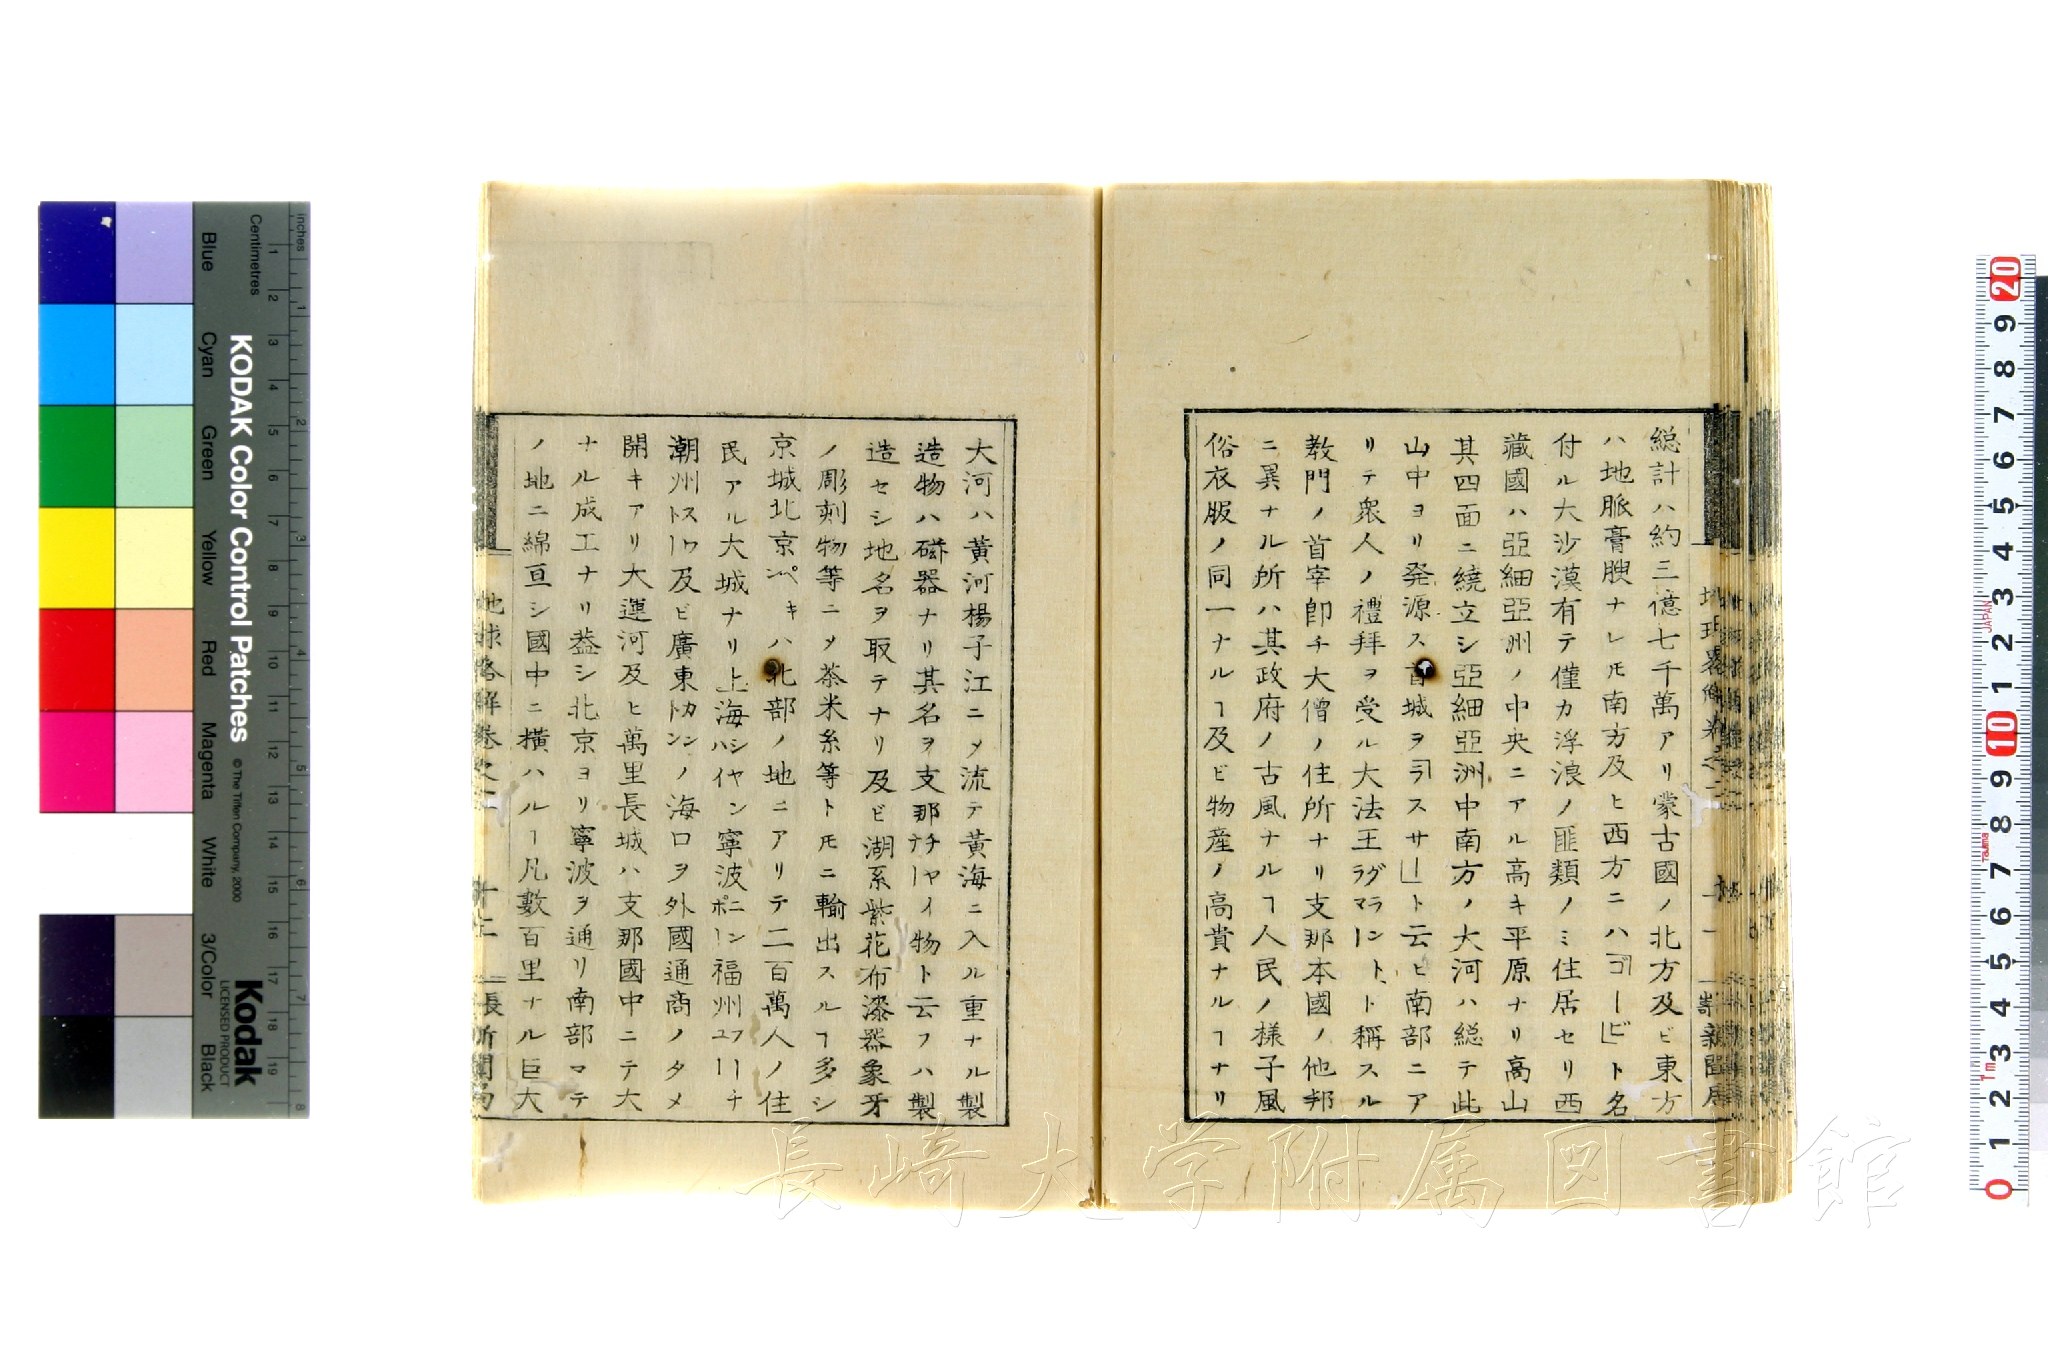 総計ハ約三億七千萬アリ蒙古國ノ北方及ビ東方
ハ地脈膏腴ナレ𪜈南方及ヒ西方ニハ「ゴービ」ト名
付ル大沙漠有テ僅カ浮浪ノ匪類ノミ住居セリ西
藏國ハ亞細亞洲ノ中央ニアル高キ平原ナリ高山
其四面ニ繞立シ亞細亞洲中南方ノ大河ハ総テ此
山中ヨリ発源ス首城ヲ「ラスサー」ト云ヒ南部ニア
リテ衆人ノ禮拜ヲ受ル大法王グランドラマート稱スル
教門ノ首宰卽チ大僧ノ住所ナリ支那本國ノ他邦
ニ異ナル所ハ其政府ノ古風ナルヿ人民ノ樣子風
俗衣服ノ同一ナルヿ及ビ物産ノ高貴ナルヿナリ
大河ハ黄河楊子江ニ〆流テ黄海ニ入ル重ナル製
造物ハ磁器ナリ其名ヲ支那チヤイナー物ト云フハ製
造セシ地名ヲ取テナリ及ビ湖系紫花布漆器象牙
ノ彫刻物等ニ〆茶米糸等ト𪜈ニ輸出スルヿ多シ
京城北京ペキンハ北部ノ地ニアリテ二百萬人ノ住
民アル大城ナリ上海シヤンハイ寧波ニンポー福州フーチユー
潮州スワトー及ビ廣東カントンノ海口ヲ外國通商ノタメ
開キアリ大運河及ヒ萬里長城ハ支那國中ニテ大
ナル成工ナリ蓋シ北京ヨリ寧波ヲ通リ南部マテ
ノ地ニ綿亘シ國中ニ橫ハルヿ凡數百里ナル巨大
長崎大学附属図書館
KODAK Color Control Patches
© The Tiffen Company, 2000
Kodak
LICENSED PRODUCT
inches
Centimetres
Blue
Cyan
Green
Yellow
Red
Magenta
White
3/Color
Black
1 2 3 4 5 6 7 8 9 10 11 12 13 14 15 16 17 18 19
1 2 3 4 5 6 7 8
20 9 8 7 6 5 4 3 2 1 10 9 8 7 6 5 4 3 2 1 0
JAPAN